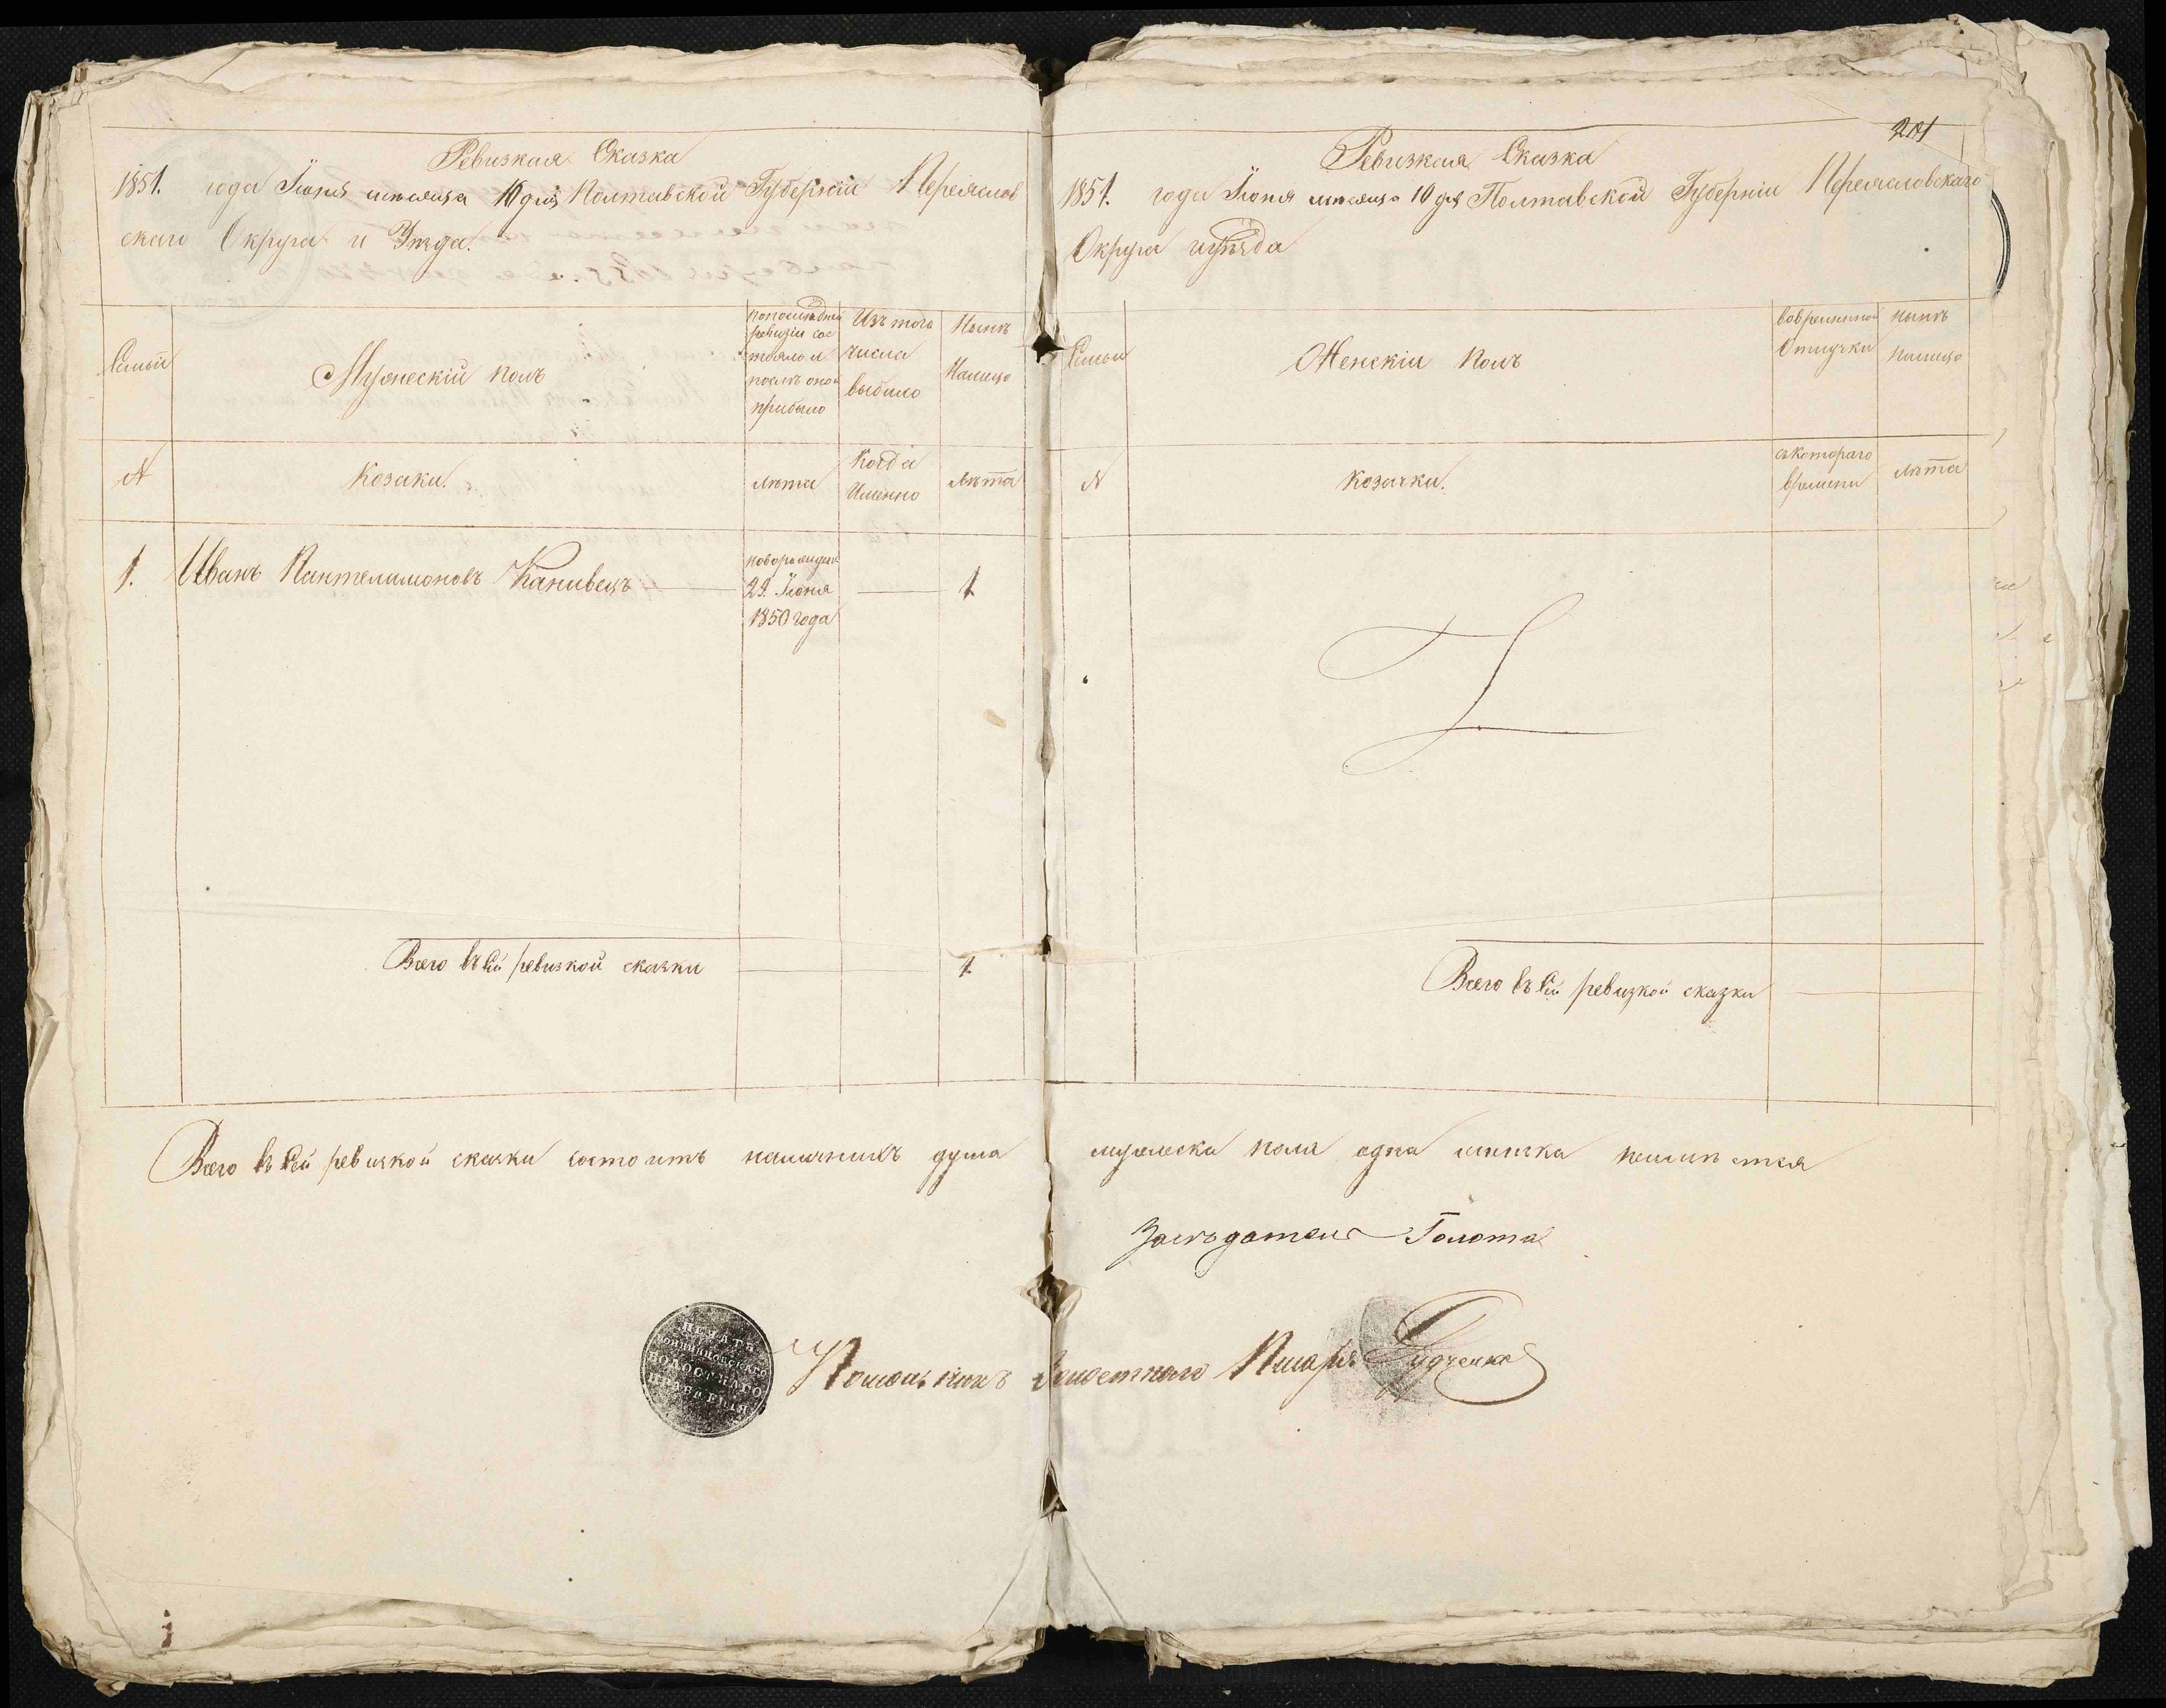 Ревизкая Сказка
1851. года Іюня мѣсяца 10 дня Полтавской Губерніи Переяслов
скаго Округа и Уѣзда.
Семьи
Мужескій полъ
по последней
ревизіи сос
тояло и
послѣ оной
прибыло
Изъ того
числа
выбыло
Нынѣ
Налицо
№
Козаки.
лѣта
Когда
Именно
лѣта
1. Иванъ Пантелимоновъ Канивецъ
новорожден
29. Іюня
1850 года
1
Всего въ сей ревизкой сказки
1
201
Ревизкая Сказка
1851. года Іюня мѣсяца 10 дня Полтавской Губерніи Переясловскаго
Округа и уѣзда
Семьи
Женскій полъ
во временной
Отлучки
нынѣ
налицо
№
Козачки.
съ котораго
времени
лѣта
Всего въ сей ревизкой сказки
Всего въ сей ревизкой сказки состоитъ наличныхъ душа мужеска пола одна женска неимѣется
Засѣдатель Голота
Помошникъ Волостного Писаря Дудченко
ПЕЧАТЬ
ВОЛОСТНАГО
ПРАВЛЕНІЯ